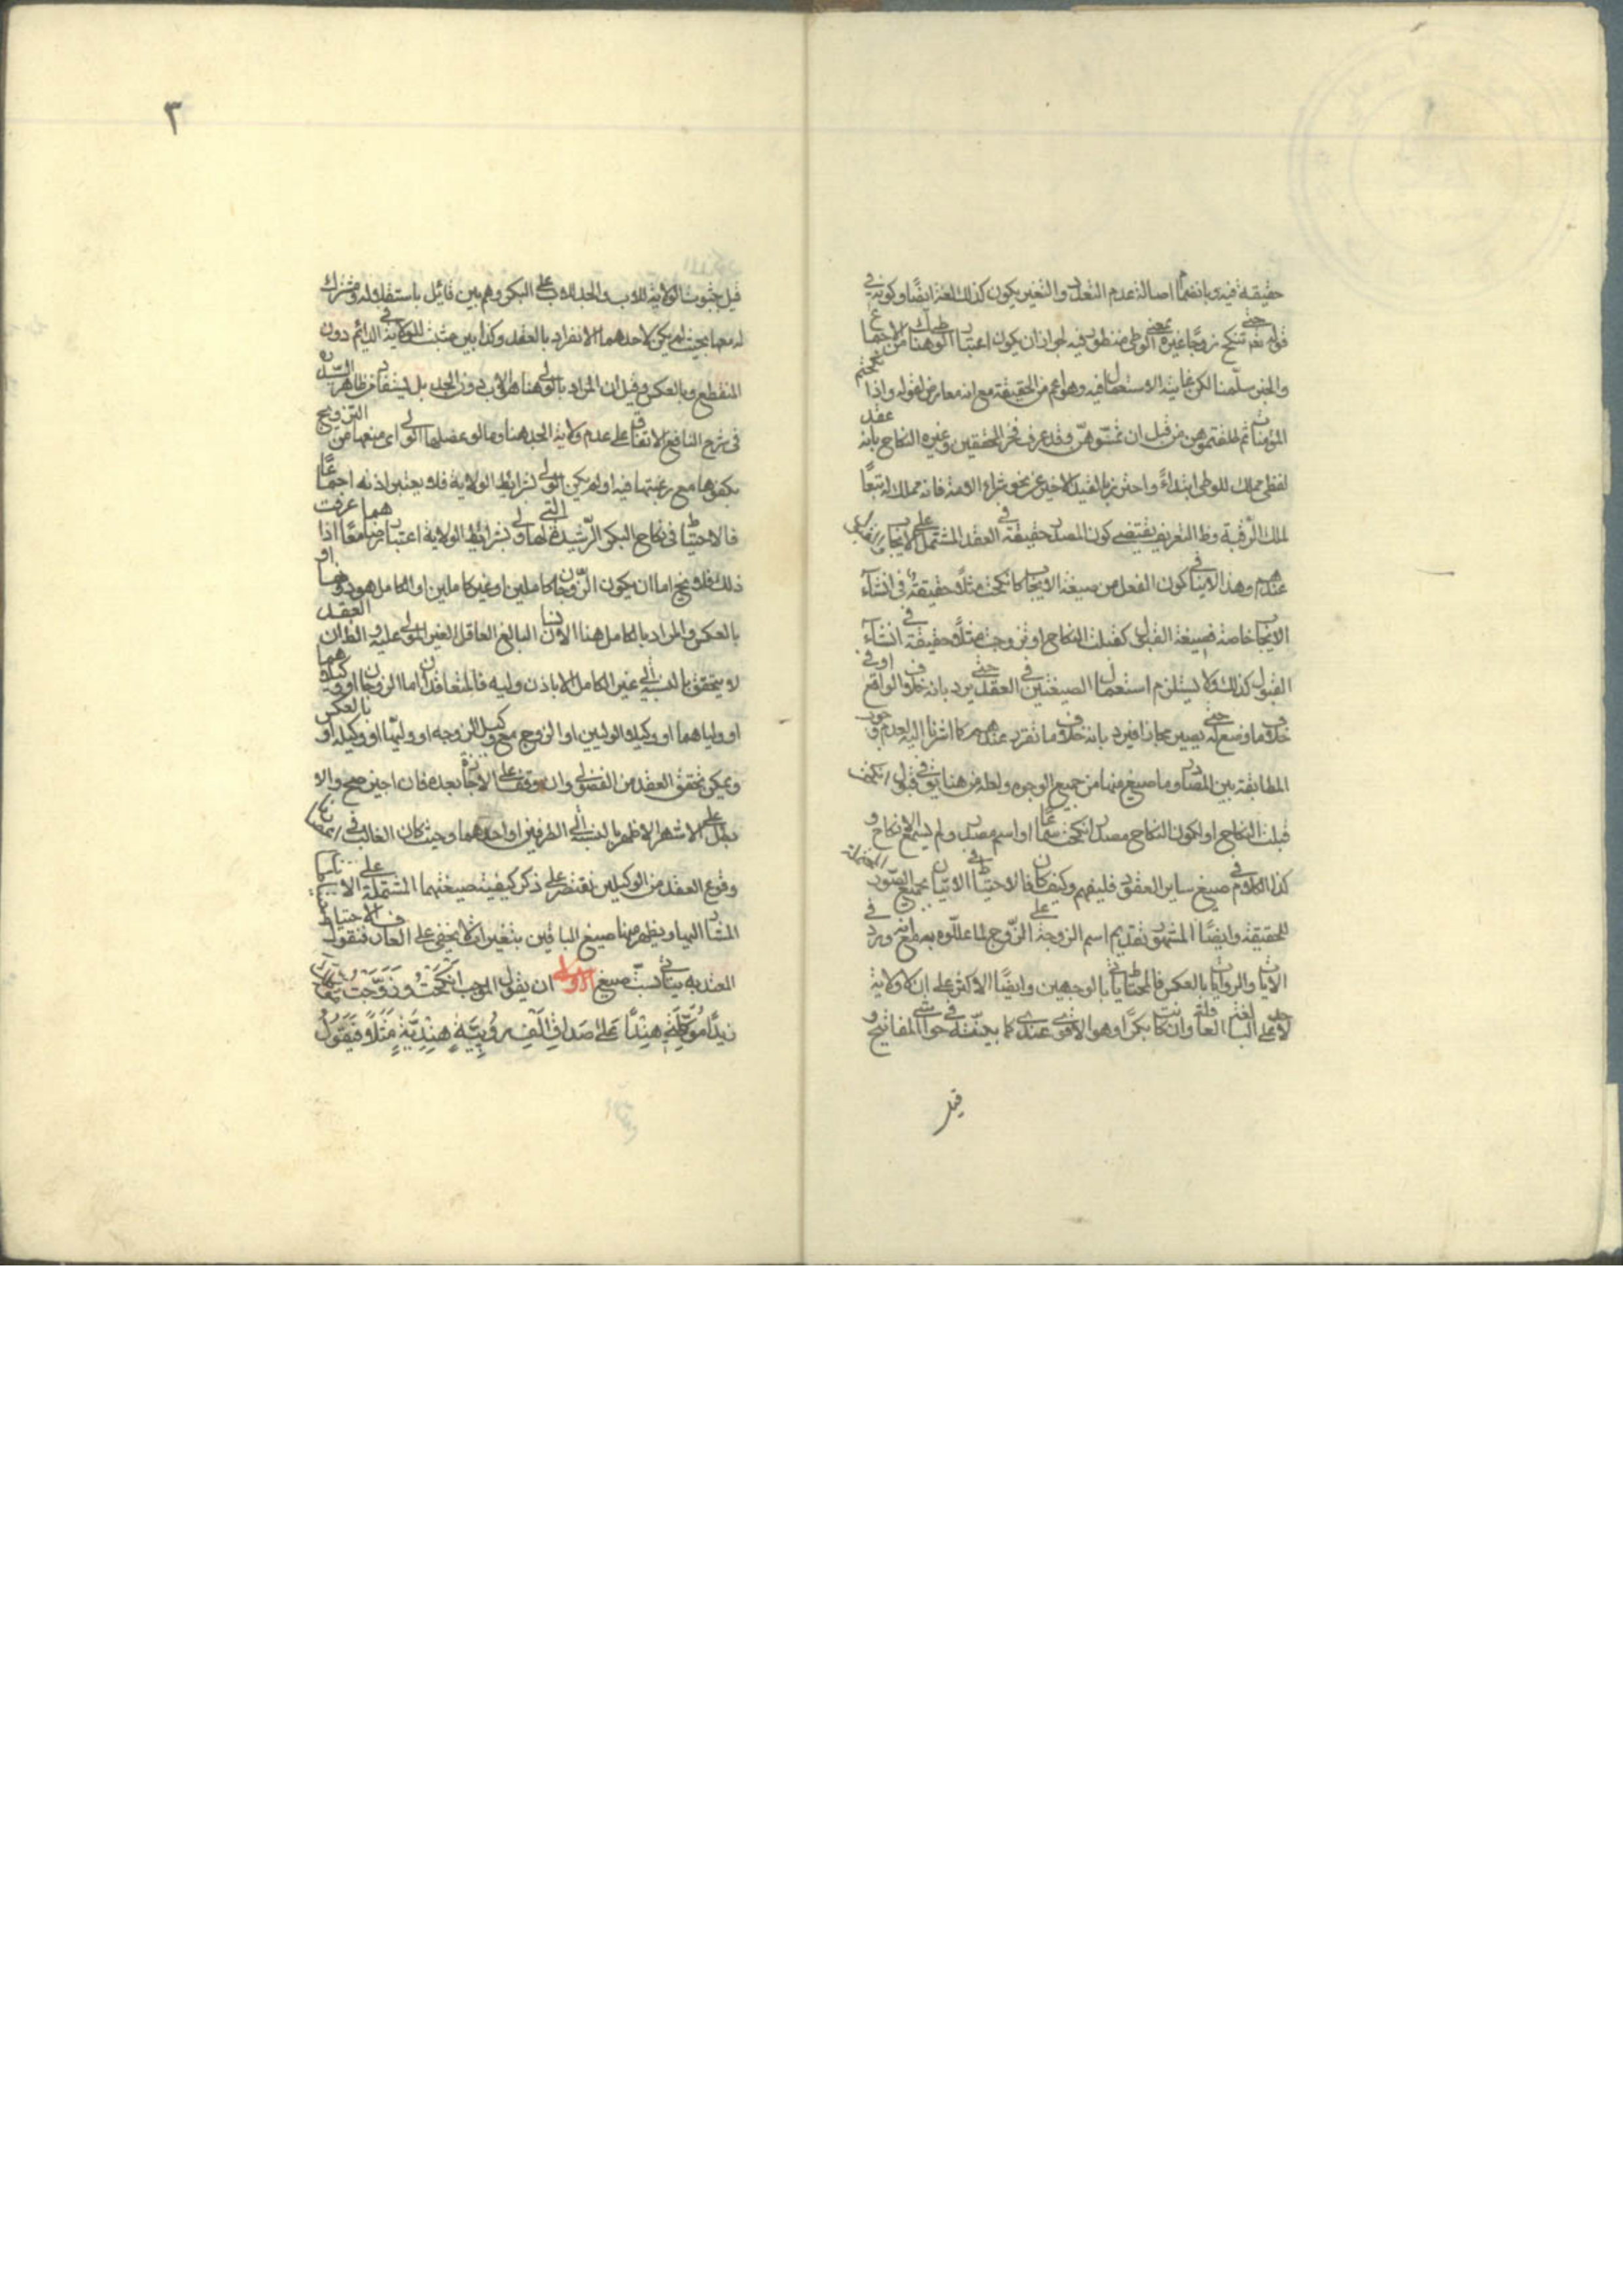 حقيقة فيه وبانضمام اصالة عدم التعدد والتغير يكون كذلك لغة ايضا وكونه في
قوله تعه حتى تنكح زوجا غيره بمعنى الوطي منظور فيه لجواز ان يكون اعتبار الوطي هنا من الاجماع
والخبر سلمنا لكن غايته الاستعمال فيه وهو اعم من الحقيقة مع انه معارض بقوله واذا نكحتم
المؤمنات ثم طلقتموهن من قبل ان تمسوهن وقد عرف فخر المحققين وغيره النكاح بانه عقد
لفظي مملك للوطي ابتداء واحترز بالقيد الاخير عن نحو شراء الامة فانه مملك له تبعا
لملك الرقبة وظ التعريف يقتضي كون المصدر حقيقة في العقد المشتمل على الايجاب والقبول
عندهم وهذا لا ينافي كون الفعل من صيغة الايجاب كانكحت مثلا حقيقة في انشاء
الايجاب خاصة وصيغة القبول كقبلت النكاح او تزوجت مثلا حقيقة في انشاء
القبول كذلك ولا يستلزم استعمال الصيغتين في العقد حتى يرد بانه خلاف الواقع او في
خلاف ما وضع له حتى يصير مجازا فيرد بانه خلاف ما تقرر عندهم كما اشرنا اليه لعدم وجوب
المطابقة بين المصادر وما صيغ منها من جميع الوجوه ولعله من هنا يتوقف في قبول انكحت
قبلت النكاح او لكون النكاح مصدر انكحت سماعا او اسم مصدر ولم يسمع الانكاح و
كذا الكلام في صيغ ساير العقود فليفهم وكيف كان فالاحتياط في الاتيان بجميع الصور المحتملة
للحقيقة وايضا المشهور تقديم اسم الزوجة على الزوج لما عللوه به مع انه ورد في
الايات والروايات بالعكس فالمحتاط ياتي بالوجهين وايضا الاكثر على ان لا ولاية
لاحد على البالغة العاقلة وان كانت بكرا وهو الاقوى عندي كما بينته في حواشي المفاتيح و
قيل
٣
قيل بثبوت الولاية للاب والجد للاب على البكر وهم بين قائل باستقلاله ومشترك
له معها بحيث لم يكن لاحدهما الانفراد بالعقد وكذا بين مثبت للولاية في الدائم دون
المنقطع وبالعكس وقيل ان المراد بالولي هنا هو الاب دون الجد بل يستفاد من ظاهر
في شرح النافع الاتفاق على عدم ولاية الجد هنا وما لو عضلها الولي اي منعها من التزويج
بكفوها مع رغبتها فيه او لم يكن الولي بشرايط الولاية فلا يعتبر اذنه اجماعا
فالاحتياط في نكاح البكر الرشيدة التي لها ولي بشرايط الولاية اعتبار رضاهما معا اذا عرفت
ذلك فلا يخ اما ان يكون الزوجان كاملين او غير كاملين او الكامل هو دونها او
بالعكس والمراد بالكامل هنا الانسان البالغ العاقل الغير المولى عليه والظ ان العقد
لا يتحقق بالنسبة الى غير الكامل الا باذن وليه فالمتعاقدان اما الزوجان او وكيلاهما
او ولياهما او وكيلا الوليين او الزوج مع وكيل الزوجة او وليها او وكيله او بالعكس
ويمكن تحقق العقد من الفضولي وان توقف على الاجازة بعده فان اجيز صح والا
بطل على الاشهر الاظهر بالنسبة الى الطرفين او احدهما وحيث كان الغالب في
وقوع العقد من الوكيلين نقتصر على ذكر كيفية صيغتهما المشتملة على
المشار اليها ويظهر منها صيغ الباقين بتغيير ما لا يخفى على العارف فنقول الاحتياط
المعتد به يتاتى بست صيغ الاولى ان يقول الموجب انكحت وزوجت
زيدا موكلتي هندا على صداق الف روبية هندية مثلا فيقول